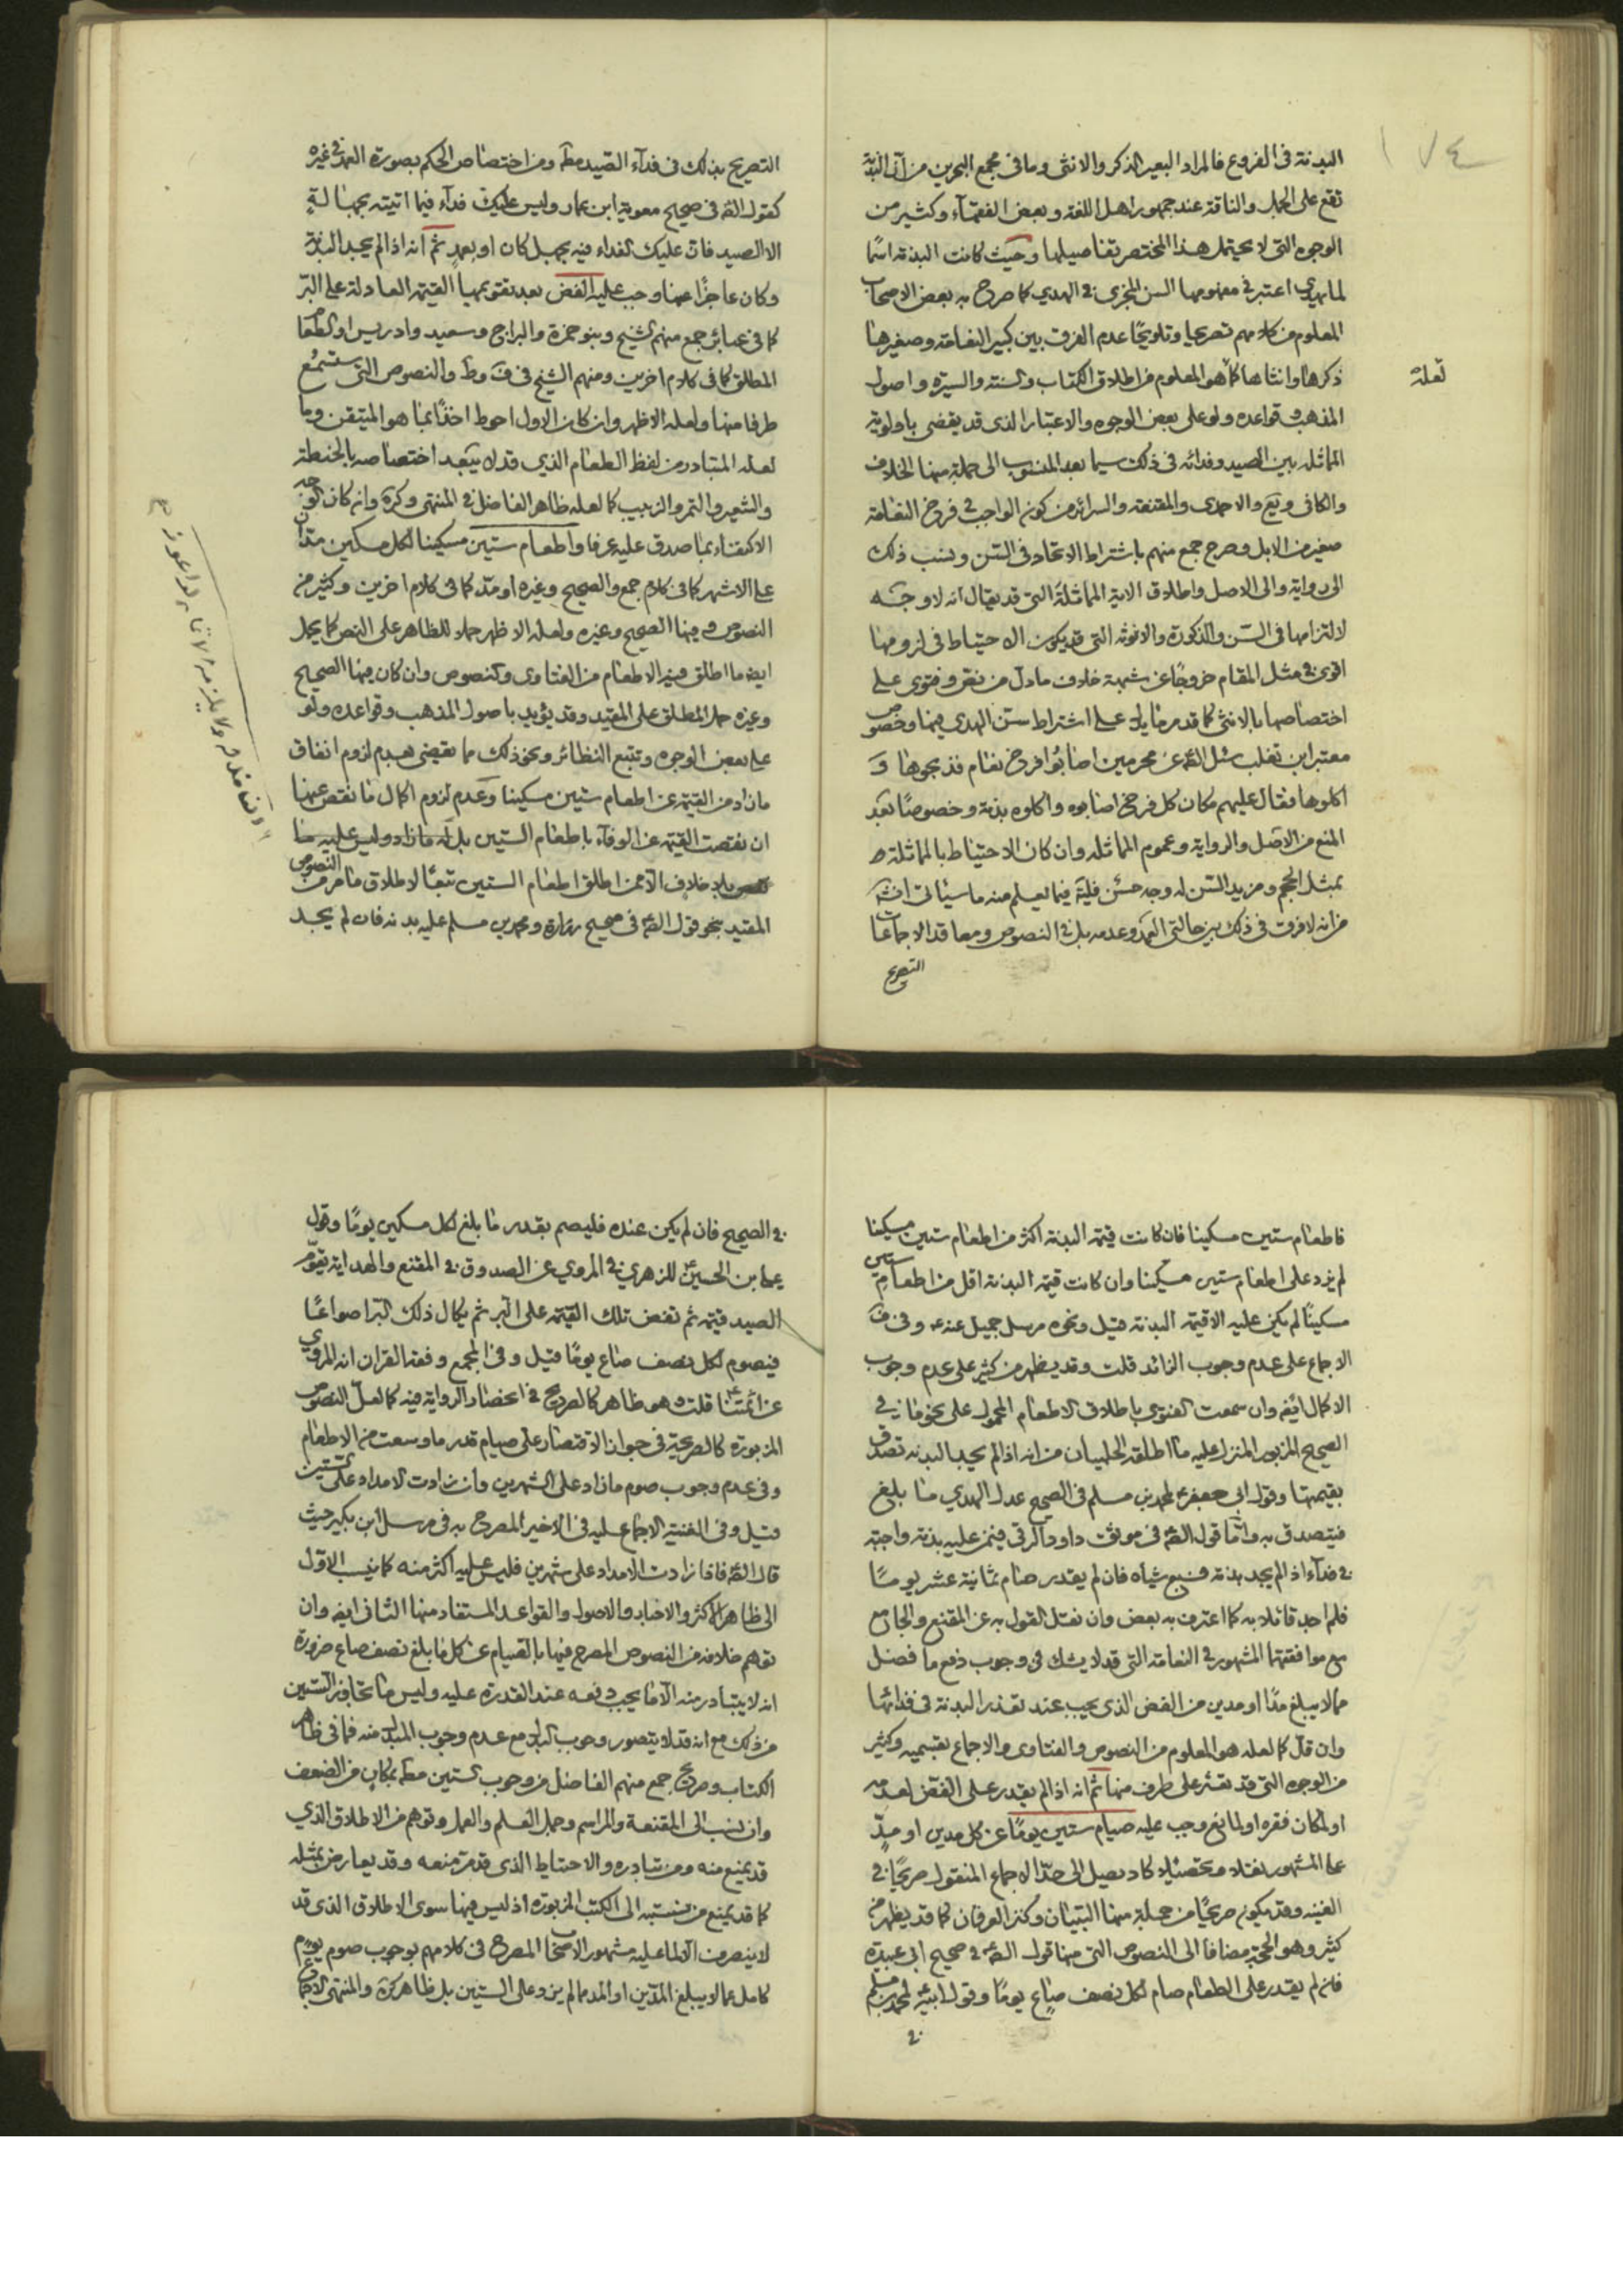 ١٧٤
البدنة في الفروع فالمراد البعير الذكر والانثى وما في مجمع البحرين من ان البدنة
تقع على الجمل والناقة عند جمهور اهل اللغة وبعض الفقهآء وكثير من
الوجوه التي لا يحتمل هذا المختصر تفاصيلها وحيث كانت البدنة اسمًا
لما يهدى اعتبر في مفهومها السن المجزى في الهدي كما صرح به بعض الاصحاب
المعلوم من كلامهم تصريحا وتلويحًا عدم الفرق بين كبير النعامة وصغيرها
ذكرها وانثاها كما هو المعلوم من اطلاق الكتاب والسنة والسيرة واصول
تعلة
المذهب وقواعده ولو على بعض الوجوه والاعتبار الذى قد يقضى باولوية
المماثلة بين الصيد وفدائه في ذلك سيما بعد المنسوب الى جملة منها الخلاف
والكافي ويع والاحمدى والمقنعة والسرائر من كون الواجب في فرخ النعامة
صغير من الابل وصرح جمع منهم باشتراط الاتحاد في السن ونسب ذلك
الى رواية والى الاصل واطلاق الاية المماثلة التي قد يقال انه لا وجه
لالتزامها في السن والذكورة والانوثه التي قد يكون الاحتياط في لزومها
اقوى في مثل المقام خروجًا عن شبهة خلاف ما دل من نص وفتوى على
اختصاصها بالانثى كما قد مر ما يدل على اشتراط سن الهدى فيها وخصوص
معتبر ابن تغلب سئل الص عن محرمين اصابوا فرخ نعام فذبحوها و
اكلوها فقال عليهم مكان كل فرخ اصابوه واكلوه بدنة وخصوصًا بعد
المنع من الاصل والرواية وعموم المماثلة وان كان الاحتياط بالمماثلة ط
بمثل الحجم ومزيد السن له وجه حسن فليت فيما يعلم منه ما سياتي انش
من انه لا فرق في ذلك بين حالتي العمد وعدمه بل في النصوص ومعاقد الاجماعات
التصريح
التصريح بذلك في فدآء الصيد مط ومن اختصاص الحكم بصورة العمد في غيره
كقول الص في صحيح معوية ابن عمار وليس عليك فدآء فيما اتيته بجهالة
الا الصيد فان عليك الفداء فيه بجهل كان او بعمد ثم انه اذا لم يجد البدنة
وكان عاجزًا عنها وجب عليه الفض بعد تقويمها القيمة العادلة على البر
كما في عبائر جمع منهم الشيخ وبنو حمزة والبراج وسعيد وادريس او الطعام
المطلق كما في كلام اخرين ومنهم الشيخ في ف وط والنصوص التي ستسمع
طرفا منها ولعله الاظهر وان كان الاول احوط اخذًا بما هو المتيقن وما
لعله المتبادر من لفظ الطعام الذي قد لا يبعد اختصاصه بالحنطة
والشعير والتمر والزبيب كما لعله ظاهر الفاضل في المنتهى وكره وان كان الوجه
الاكتفاء بما صدق عليه عرفا واطعام ستين مسكينا لكل مسكين مدان
على الاشهر كما في كلام جمع والصحيح وغيره او مد كما في كلام اخرين وكثير من
النصوص ومنها الصحيح وغيره ولعله الاظهر حملا للظاهر على النص كما يحمل
ايض ما اطلق فيه الاطعام من الفتاوى والنصوص وان كان منها الصحيح
وغيره حمل المطلق على المقيد وقد يؤيد باصول المذهب وقواعده ولو
على بعض الوجوه وتتبع النظائر ونحو ذلك مما يقضى بعدم لزوم انفاق
ما زاد من القيمة عن اطعام ستين مسكينا وعدم لزوم اكمال ما نقص عنها
ان نقصت القيمة عن الوفآء باطعام الستين بل له ما زاد وليس عليه
بلا خلاف الا ممن اطلق اطعام الستين تبعًا لاطلاق ما مر من النصوص
المقيد بنحو قول الص في صحيح زرارة ومحمد بن مسلم عليه بدنه فان لم يجد
فاطعام ستين مسكينا فان كانت قيمة البدنة اكثر من اطعام ستين مسكينا
لم يزد على اطعام ستين مسكينا وان كانت قيمة البدنة اقل من اطعام ستين
مسكينًا لم يكن عليه الا قيمة البدنة قيل ونحوه مرسل جميل عنه وفي ف
الاجماع على عدم وجوب الزائد قلت وقد يظهر من كثير على عدم وجوب
الاكمال ايض وان سمعت الفتوى باطلاق الاطعام المحمول على نحو ما في
الصحيح المزبور المنزل عليه ما اطلقه الحلبيان من انه اذا لم يجد البدنه تصدق
بقيمتها وقول ابى جعفر لمحمد بن مسلم في الصحيح عدل الهدي ما بلغ
فيتصدق به واما قول الص في موثق داود الرقي فيمن عليه بدنة واجبة
في فدآء اذا لم يجد بدنة فسبع شياه فان لم يقدر صام ثمانية عشر يومًا
فلم اجد قائلا به كما اعترف به بعض وان نقل القول به عن المقنع والجامع
مع موافقتهما المشهور في النعامة التي قد لا يشك في وجوب دفع ما فضل
مما لا يبلغ مدًا او مدين من الفض الذى يجب عند تعذر البدنة في فدائها
وان قل كما لعله هو المعلوم من النصوص والفتاوى والاجماع بقسميه وكثير
من الوجوه التي قد تعثر على طرف منها ثم انه اذا لم يقدر على الفض لعدمه
او لمكان فقره او لمانع وجب عليه صيام ستين يومًا عن كل مدين او مد
على المشهور نقلا وتحصيلا كاد يصل الى حد الاجماع المنقول صريحًا في
الغنيه وقد يكون صريحًا من جملة منها التبيان وكنز العرفان كما قد يظهر من
كثير وهو الحجة مضافا الى النصوص التي منها قول الص في صحيح ابى عبيدة
فان لم يقدر على الطعام صام لكل نصف صاع يومًا وقول ابيه لمحمد بن مسلم
في
في الصحيح فان لم يكن عنده فليصم بقدر ما بلغ لكل مسكين يومًا وقول
على بن الحسين للزهري في المروي عن الصدوق في المقنع والهداية يقوم
الصيد قيمة ثم تفض تلك القيمة على البر ثم يكال ذلك البر اصواعًا
فيصوم لكل نصف صاع يومًا قيل وفي المجمع وفقه القران انه المروي
عن ائمتنا قلت وهو ظاهر كالصريح في اعتضاد الرواية فيه كما لعل النصوص
المزبورة كالصريحة في جواز الاقتصار على صيام قدر ما وسعت من الاطعام
وفي عدم وجوب صوم ما زاد على الشهرين وان زادت الامداد على الستين
قيل وفي الغنية الاجماع عليه في الاخير المصرح به في مرسل ابن بكير حيث
قال الص فاذا زادت الامداد على شهرين فليس عليه اكثر منه كما ينسب الاول
الى ظاهر الاكثر والاخبار والاصول والقواعد المستفاد منها الثاني ايض وان
توهم خلافه من النصوص المصرح فيها بالصيام عن كل ما بلغ نصف صاع ضرورة
انه لا يتبادر منه الا ما يجب دفعه عند القدرة عليه وليس ما تجاوز الستين
من ذلك مع انه قد لا يتصور وجوب البدل مع عدم وجوب المبدل منه فما في ظاهر
الكتاب وصريح جمع منهم الفاضل من وجوب الستين مط بمكان من الضعف
وان نسب الى المقنعة والمراسم وجمل العلم والعمل وتوهم من الاطلاق الذي
قد يمنع منه ومن تبادره والاحتياط الذى قد مر منعه وقد يعارض بمثله
كما قد يمنع من نسبته الى الكتب المزبورة اذ ليس فيها سوى الاطلاق الذى قد
لا ينصرف الا لما عليه مشهور الاصحاب المصرح في كلامهم بوجوب صوم يوم
كامل عما لا يبلغ المدين او المد مما لم يزد على الستين بل ظاهر كره والمنتهى الاجماع